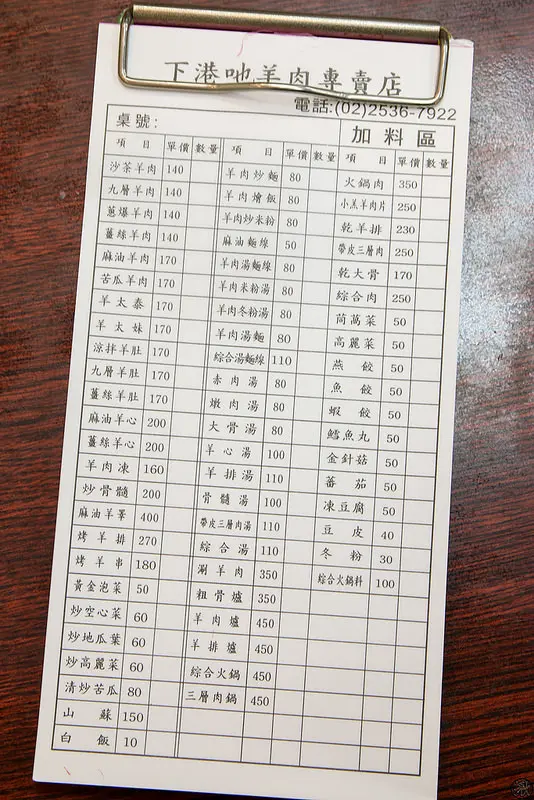 下港吔羊肉專賣店
電話:(02)2536-7922
桌號:
加料區
項目 單價 數量 項目 單價 數量 項目 單價 數量
沙茶羊肉 140 羊肉炒麵 80 火鍋肉 350
九層羊肉 140 羊肉燴飯 80 小羔羊肉片 250
蔥爆羊肉 140 羊肉炒米粉 80 乾羊排 230
薑絲羊肉 140 麻油麵線 50 帶皮三層肉 250
麻油羊肉 170 羊肉湯麵線 80 乾大骨 170
苦瓜羊肉 170 羊肉米粉湯 80 綜合肉 250
羊太泰 170 羊肉冬粉湯 80 茼萵菜 50
羊太妹 170 羊肉湯麵 80 高麗菜 50
涼拌羊肚 170 綜合湯麵線 110 燕餃 50
九層羊肚 170 赤肉湯 80 魚餃 50
薑絲羊肚 170 燉肉湯 80 蝦餃 50
麻油羊心 200 大骨湯 80 鱈魚丸 50
薑絲羊心 200 羊心湯 100 金針菇 50
羊肉凍 160 羊排湯 110 蕃茄 50
炒骨髓 200 骨髓湯 100 凍豆腐 50
麻油羊睪 400 帶皮三層肉湯 110 豆皮 40
烤羊排 270 綜合湯 110 冬粉 30
烤羊串 180 涮羊肉 350 綜合火鍋料 100
黃金泡菜 50 粗骨爐 350
炒空心菜 60 羊肉爐 450
炒地瓜葉 60 羊排爐 450
炒高麗菜 60 綜合火鍋 450
清炒苦瓜 80 三層肉鍋 450
山蘇 150
白飯 10